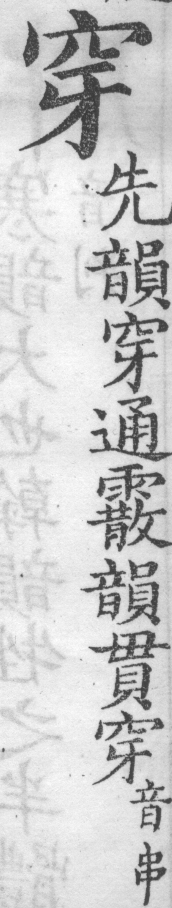 穿先韻穿通霰韻貫穿音串